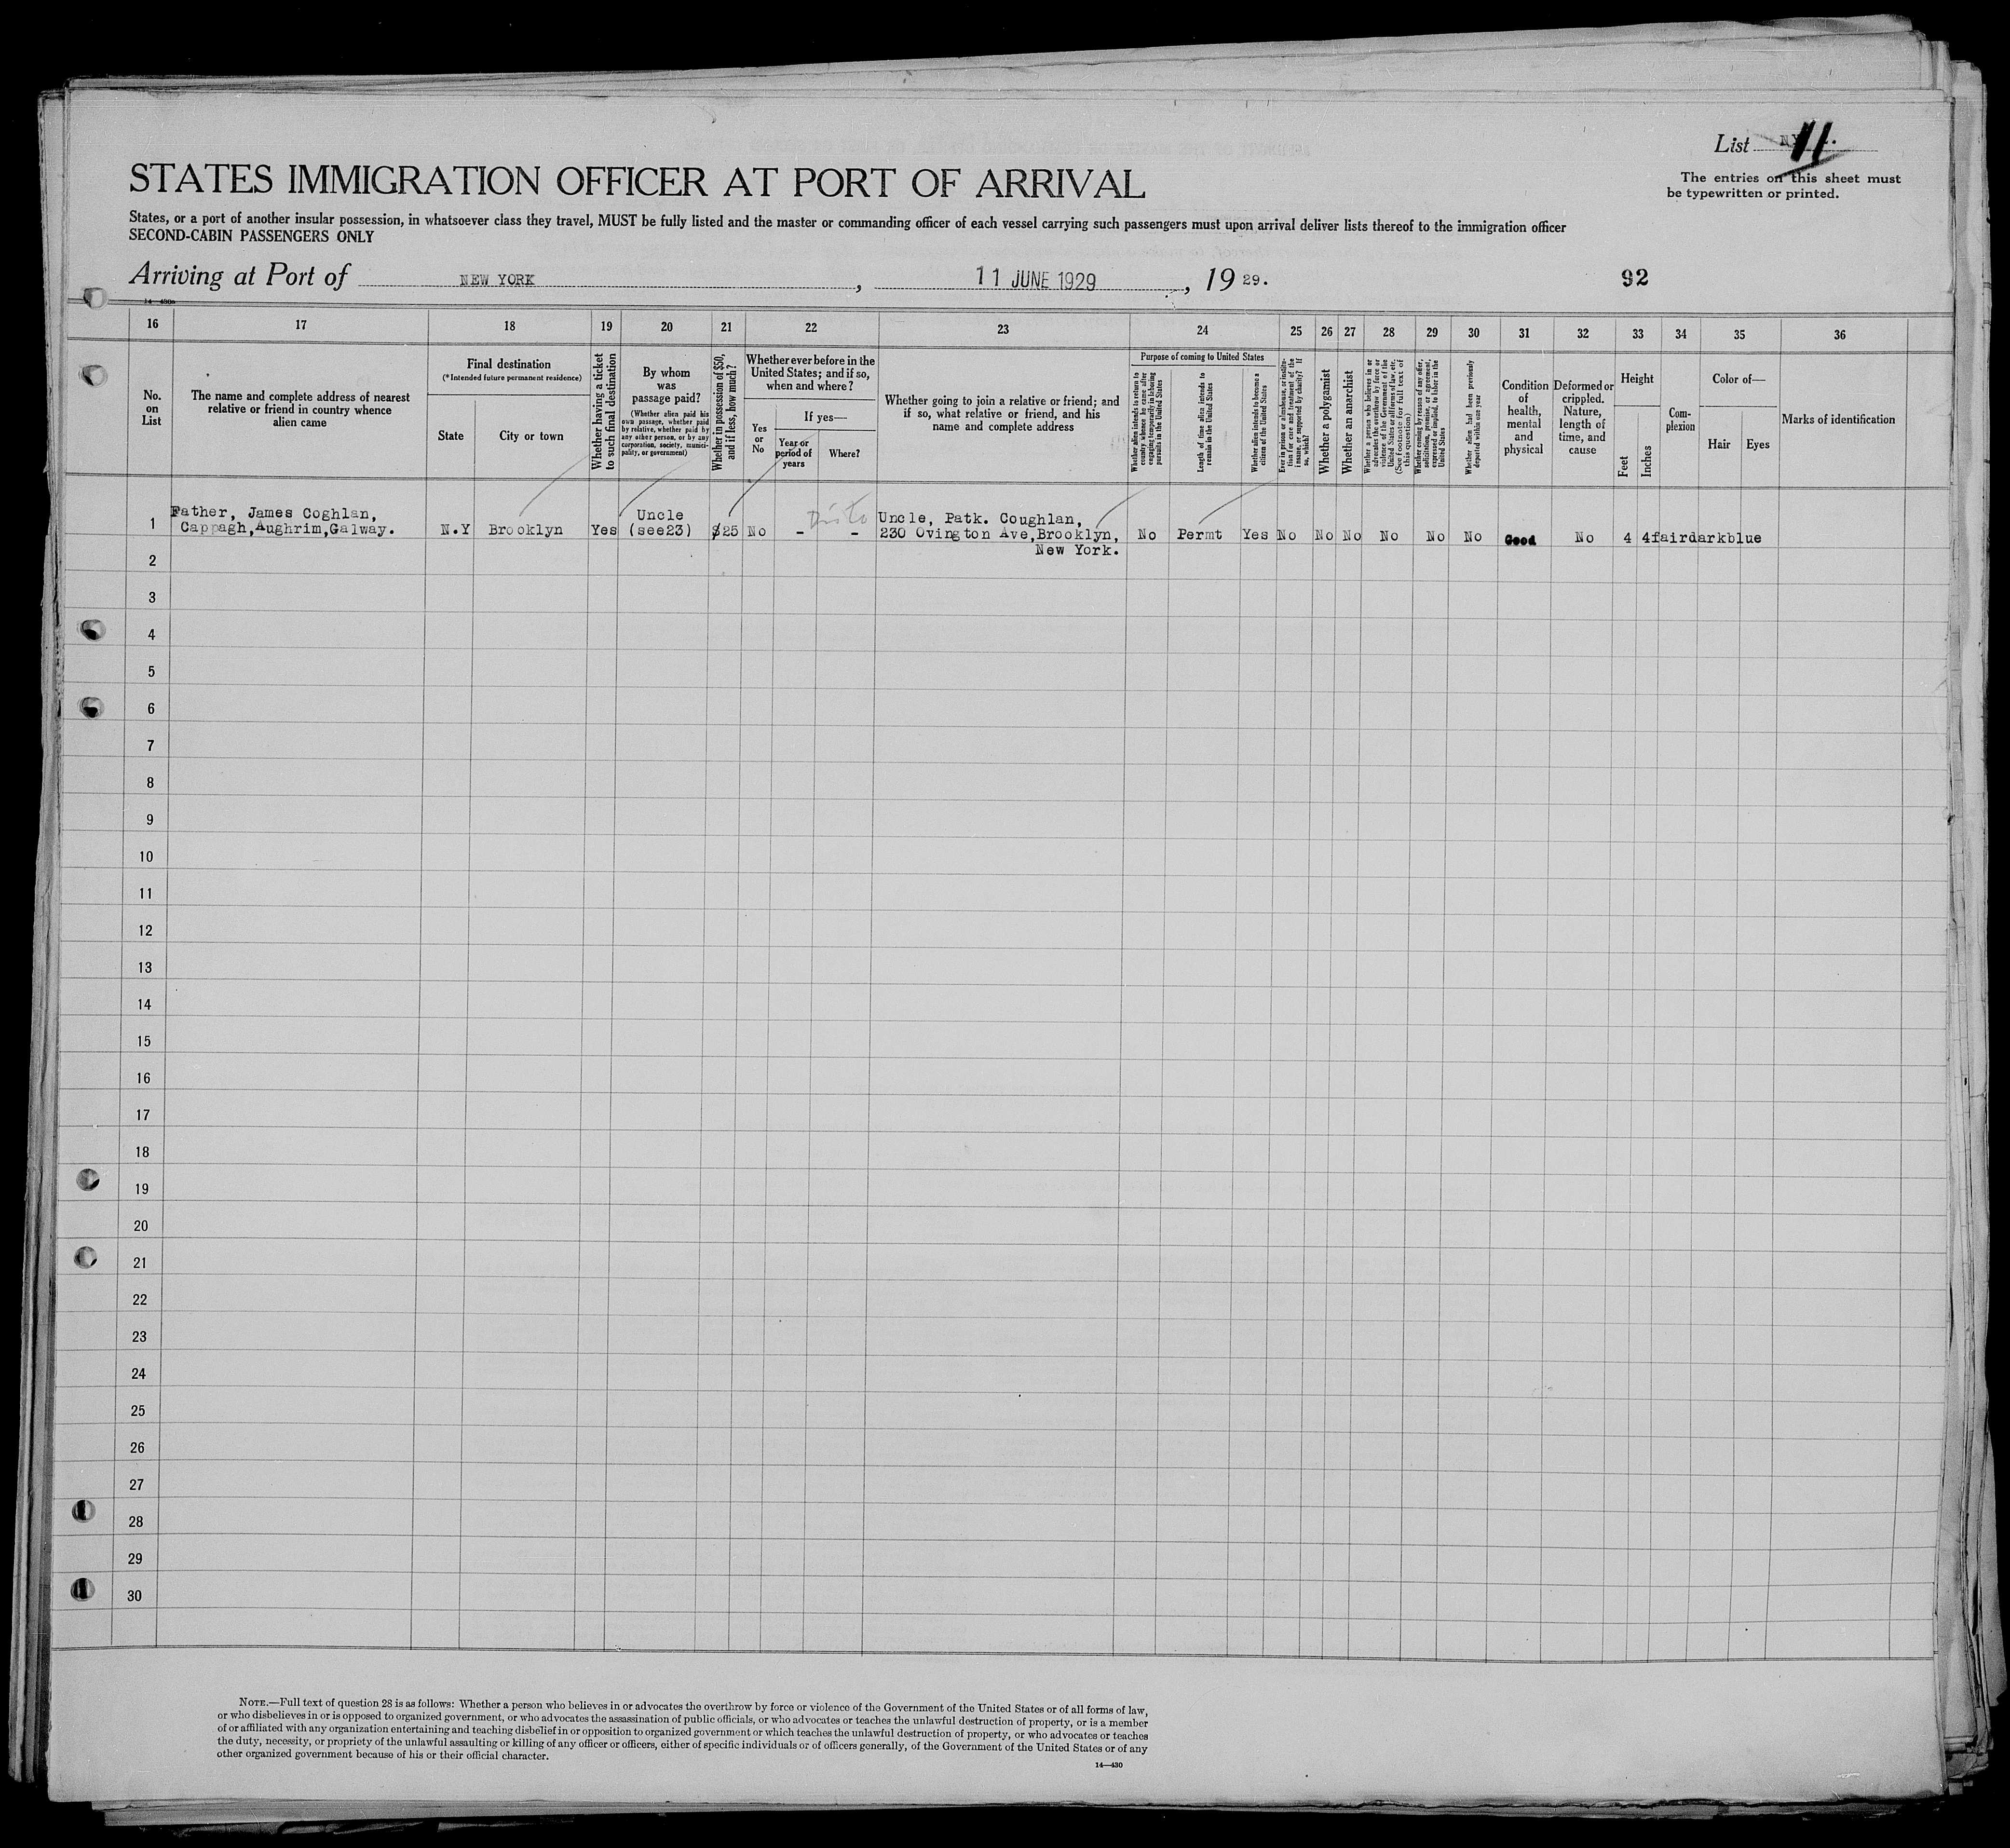 List 11.
The entries on this sheet must
be typewritten or printed.
STATES IMMIGRATION OFFICER AT PORT OF ARRIVAL
States, or a port of another insular possession, in whatsoever class they travel, MUST be fully listed and the master or commanding officer of each vessel carrying such passengers must upon arrival deliver lists thereof to the immigration officer
SECOND-CABIN PASSENGERS ONLY
Arriving at Port of NEW YORK, 11 JUNE 1929, 1929. 92
14-430a
16 17 18 19 20 21 22 23 24 25 26 27 28 29 30 31 32 33 34 35 36
No.
on
List
The name and complete address of nearest
relative or friend in country whence
alien came
Final destination
(*Intended future permanent residence)
State
City or town
Whether having a ticket
to such final destination
By whom
was
passage paid?
(Whether alien paid his
own passage, whether paid
by relative, whether paid by
any other person, or by any
corporation, society, munici-
pality, or government)
Whether in possession of $50,
and if less, how much?
Whether ever before in the
United States; and if so,
when and where?
Yes
or
No
If yes—
Year or
period of
years
Where?
Whether going to join a relative or friend; and
if so, what relative or friend, and his
name and complete address
Purpose of coming to United States
Whether alien intends to return to
country whence he came after
engaging temporarily in laboring
pursuits in the United States
Length of time alien intends to
remain in the United States
Whether alien intends to become a
citizen of the United States
Ever in prison or almshouse, or institu-
tion for care and treatment of the
insane, or supported by charity? If
so, which?
Whether a polygamist
Whether an anarchist
Whether a person who believes in or
advocates the overthrow by force or
violence of the Government of the
United States or all forms of law, etc.
(See footnote for full text of
this question)
Whether coming by reason of any offer,
solicitation, promise, or agreement,
expressed or implied, to labor in the
United States
Whether alien had been previously
deported within one year
Condition
of
health,
mental
and
physical
Deformed or
crippled.
Nature,
length of
time, and
cause
Height
Feet
Inches
Com-
plexion
Color of—
Hair
Eyes
Marks of identification
1 Father, James Coghlan,
Cappagh,Aughrim,Galway.
N.Y Brooklyn Yes
Uncle
(see23)
$25 No - -
Uncle, Patk. Coughlan,
230 Ovington Ave,Brooklyn,
New York.
No Permt Yes No No No No No No Good No 4 4 fair dark blue
2
3
4
5
6
7
8
9
10
11
12
13
14
15
16
17
18
19
20
21
22
23
24
25
26
27
28
29
30
NOTE.—Full text of question 28 is as follows: Whether a person who believes in or advocates the overthrow by force or violence of the Government of the United States or of all forms of law,
or who disbelieves in or is opposed to organized government, or who advocates the assassination of public officials, or who advocates or teaches the unlawful destruction of property, or is a member
of or affiliated with any organization entertaining and teaching disbelief in or opposition to organized government or which teaches the unlawful destruction of property, or who advocates or teaches
the duty, necessity, or propriety of the unlawful assaulting or killing of any officer or officers, either of specific individuals or of officers generally, of the Government of the United States or of any
other organized government because of his or their official character.
14—430